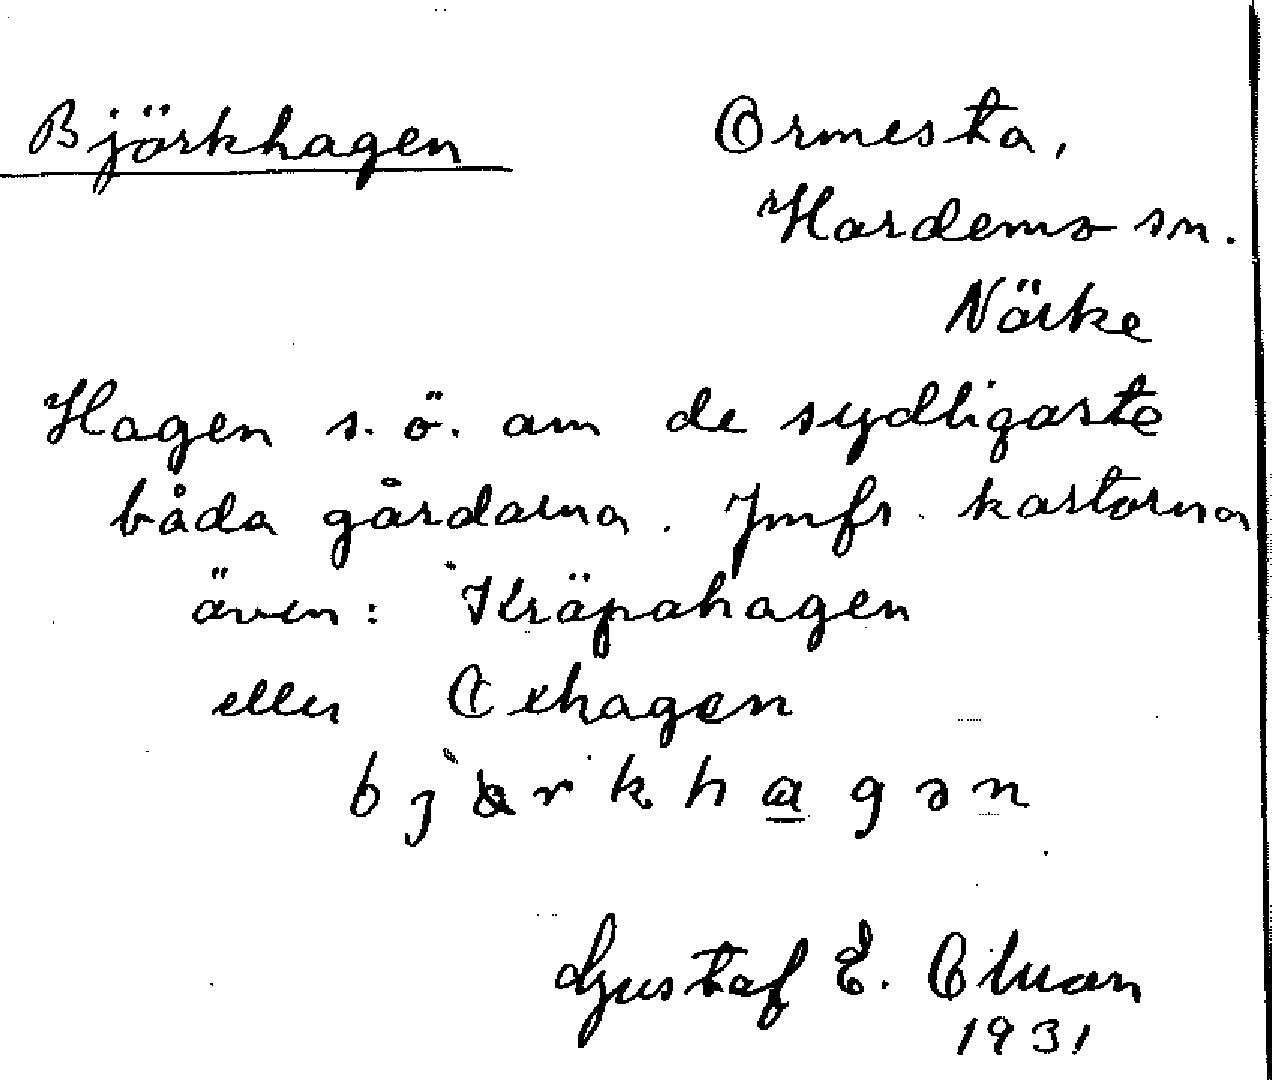 Björkhagen
Ormesta,
Hardemo sn.
Närke
Hagen s.ö. om de sydligaste
båda gårdarna. Jmfr kartorna
även: Kräpahagen
eller Oxhagen
Gustaf E.
1931